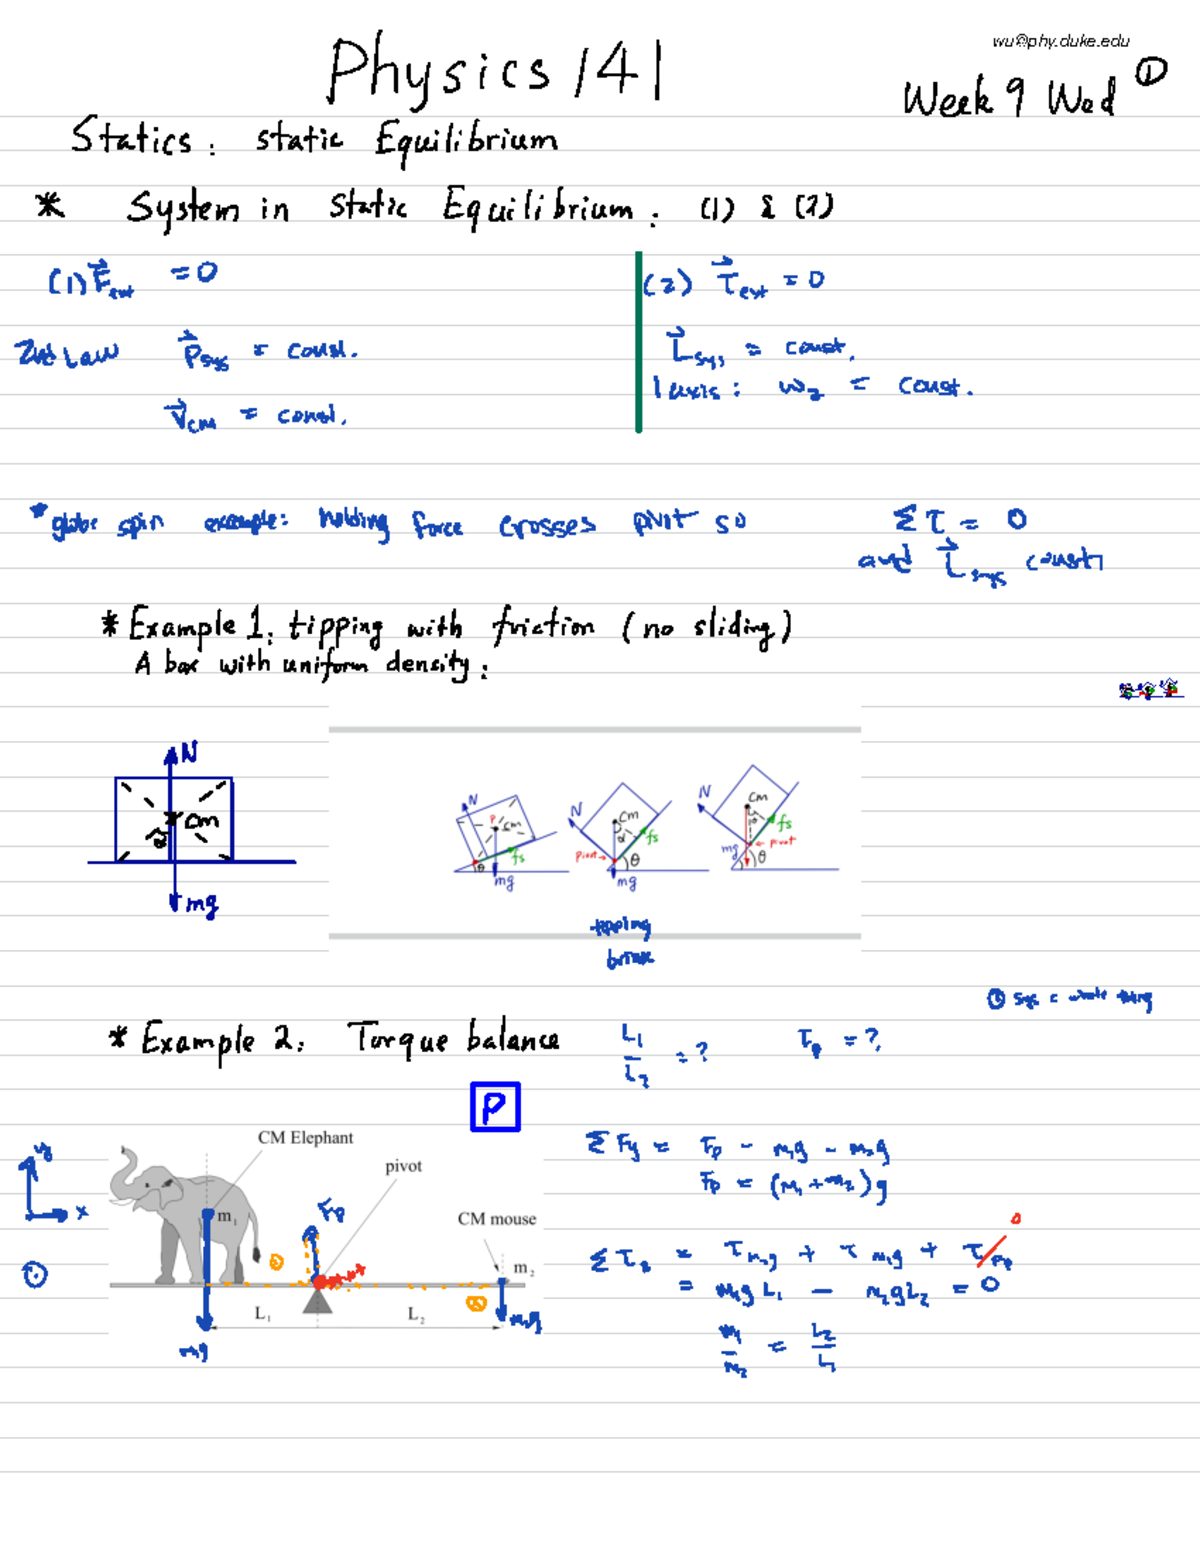 wu@phy.duke.edu
Physics 141
Week 9 Wed ①
Statics: static Equilibrium
* System in static Equilibrium: (1) & (2)
(1) F⃗ext = 0
(2) τ⃗ext = 0
2nd Law P⃗sys = const.
L⃗sys = const.
1 axis: ωz = const.
V⃗cm = const.
* globe spin example: holding force crosses pivot so Στ = 0
and L⃗sys const
* Example 1: tipping with friction (no sliding)
A box with uniform density:
N
CM
α
mg
N
P
CM
fs
θ
mg
N
CM
α
fs
pivot
θ
mg
N
CM
fs
pivot
mg
θ
tipping
① sys = whole thing
* Example 2: Torque balance L1/L2 = ? τp = ?
P
CM Elephant
pivot
CM mouse
y
x
m1
Fp
m2
L1
L2
m1g
m2g
ΣFy = Fp - m1g - m2g
Fp = (m1 + m2)g
Στp = τm1g + τm2g + τFp 0
= m1gL1 - m2gL2 = 0
m1/m2 = L2/L1